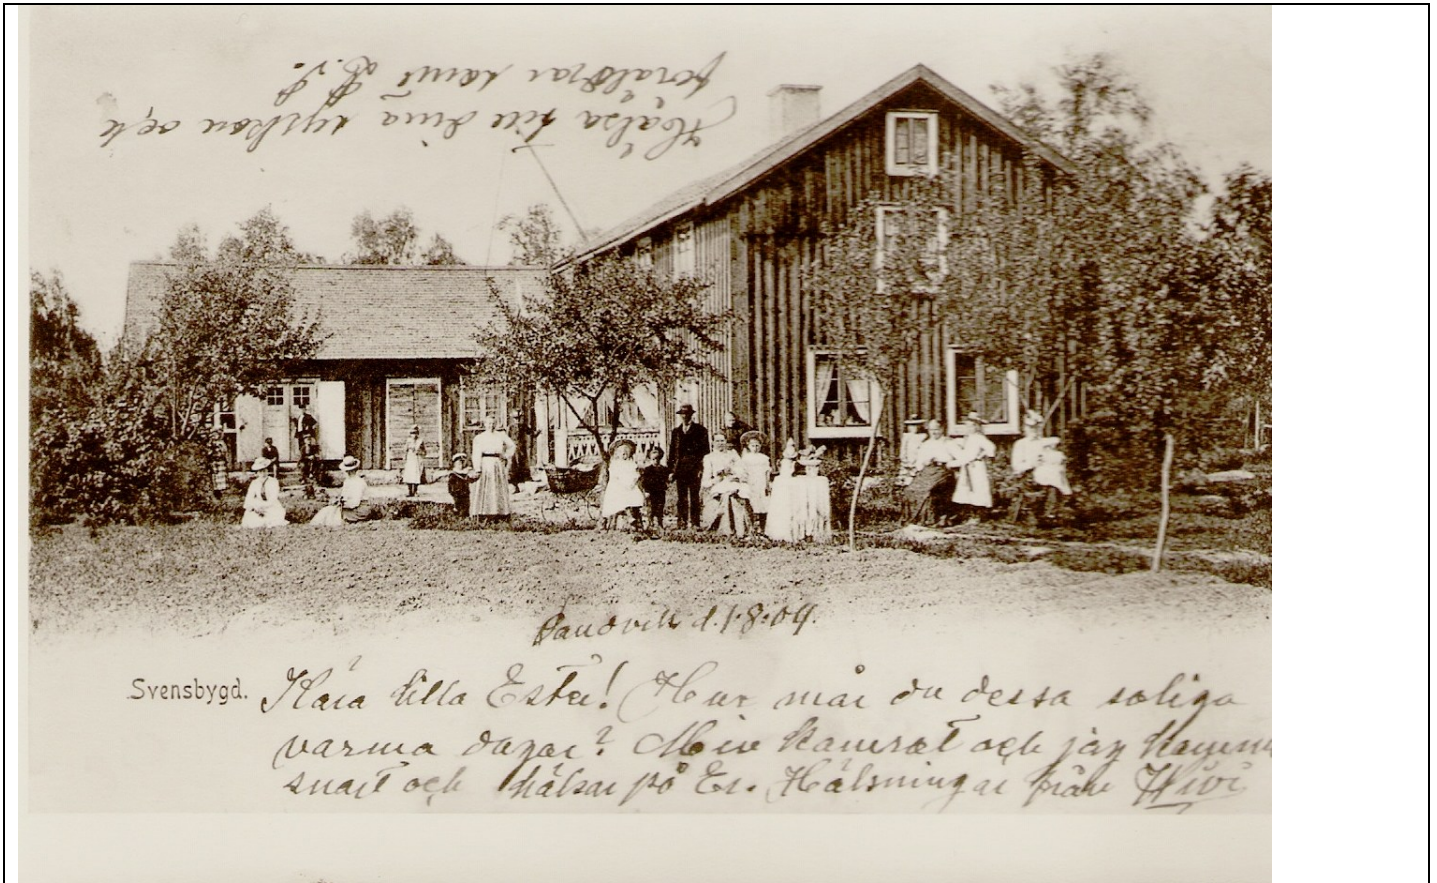 Hälsa till dina syskon och
föräldrar samt D. S.
Sandvik d. 1-8-04.
Svensbygd.
Kära lilla Ester! Hur mår du dessa soliga
varma dagar? Min kamrat och jag komma
snart och hälsar på Er. Hälsningar från Wivi